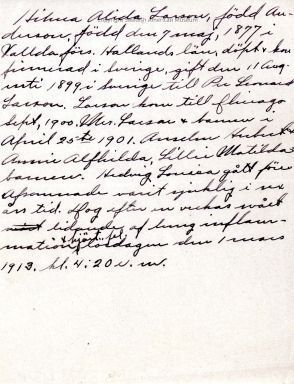 Hilma Alida Larson, född An-
derson, född den 7 maj, 1877 i
Vallda förs. Hallands län, döpt & kon
firmerad i Sverige, gift den 11 Aug
usti 1899 i Sverige till Per Leonard
Larson. Larson kom till Chicago
Sept, 1900. Mrs. Larson & barnen i
April 25te 1901. Anselm Hubert &
Annie Alfhilda, Lillie Matilda
barnen. Hedvig Lovisa gått före
Afsomnade varit sjuklig i
års tid. Dog efter en veckas svårt
lidande af lung inflam-
mation & hjärtfel lördagen den 1 mars
1913. kl. 4:20 e. m.